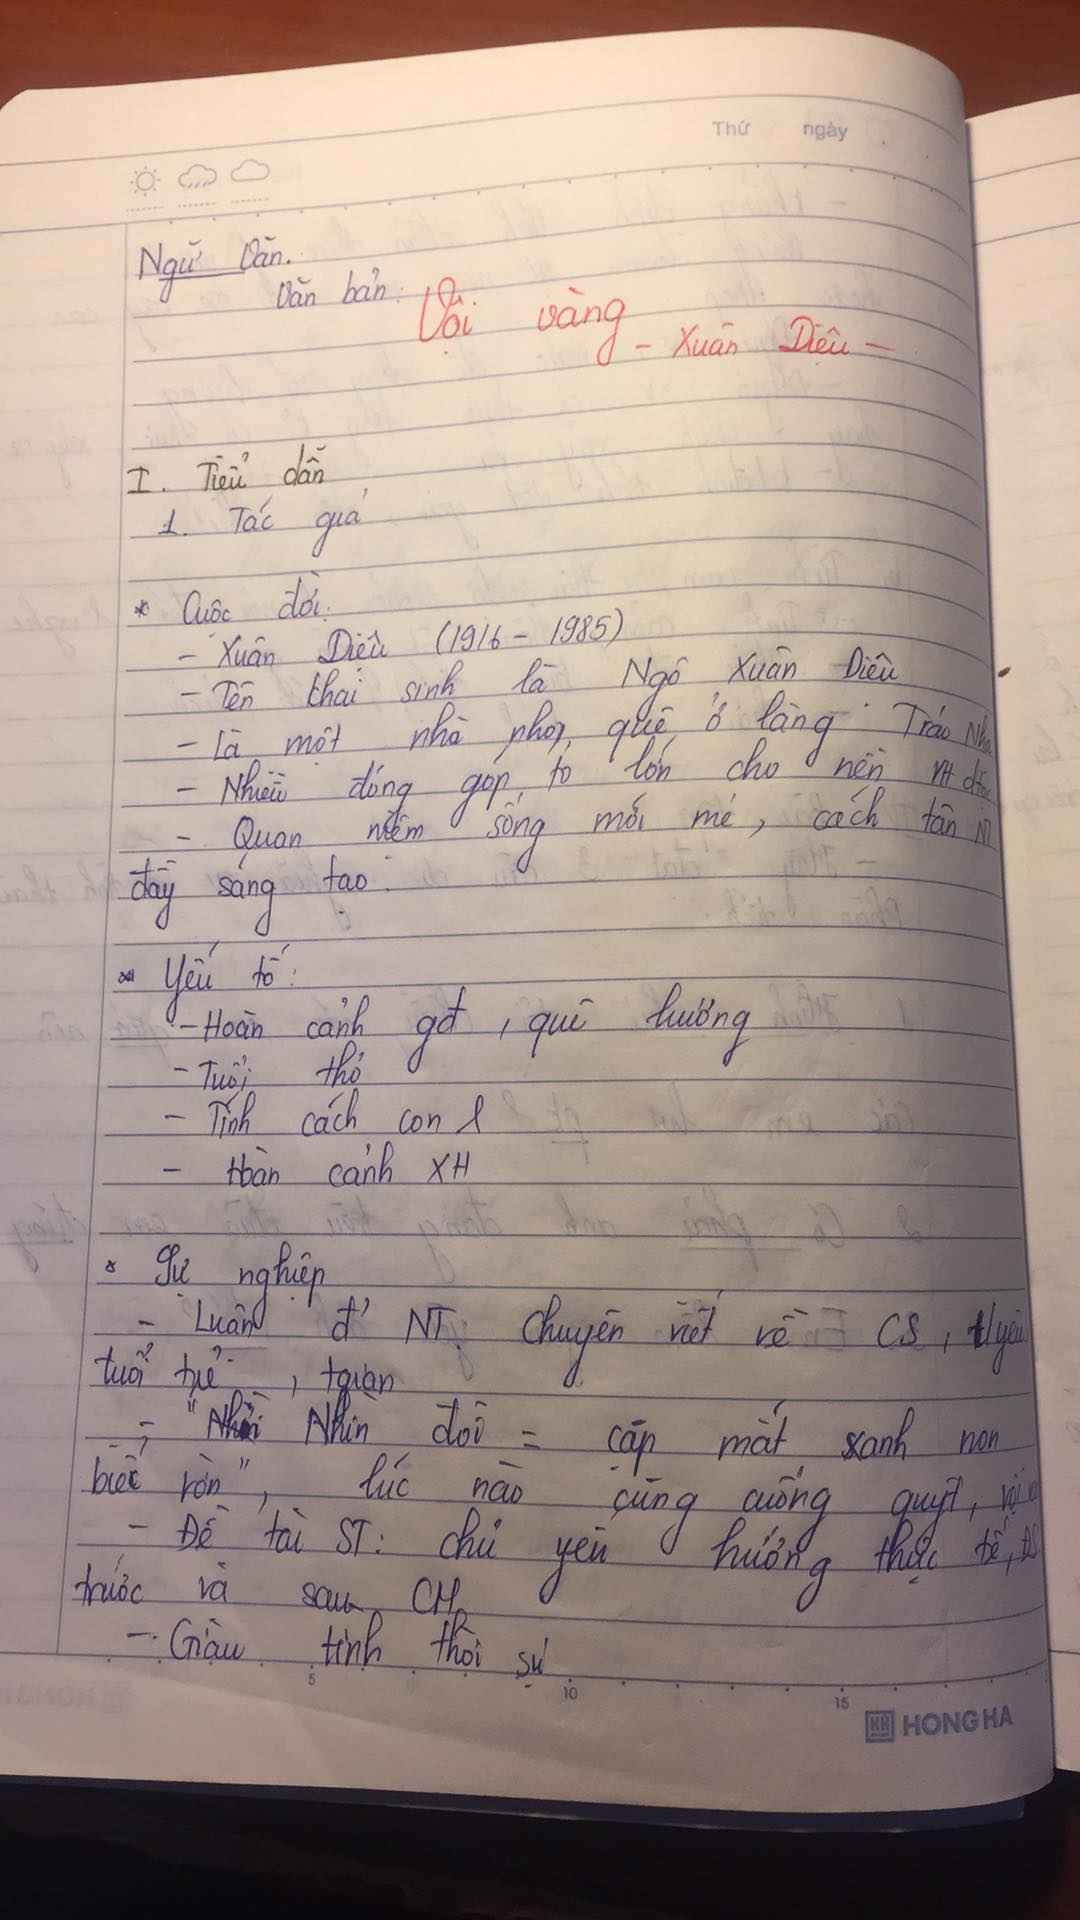 Thứ ngày
Ngữ Văn.
Văn bản:
Vội vàng
- Xuân Diệu -
I. Tiểu dẫn
1. Tác giả
* Cuộc đời.
- Xuân Diệu (1916 - 1985)
- Tên khai sinh là Ngô Xuân Diệu
- Là một nhà nho, quê ở làng Trảo Nha
- Nhiều đóng góp to lớn cho nền VH
- Quan niệm sống mới mẻ, cách tân NT
đầy sáng tạo.
* Yếu tố:
- Hoàn cảnh gđ, quê hương
- Tuổi thơ
- Tính cách con
- Hoàn cảnh XH
* Sự nghiệp
- Luận NT: Chuyên viết về CS,
tuổi trẻ, tgian
- " Nhìn đời = cặp mắt xanh non
biếc rờn", lúc nào cũng cuống quýt,
- Đề tài ST: chủ yếu hướng thực tế,
trước và sau CM
- Giàu tính thời sự
5 10 15
HONG HA